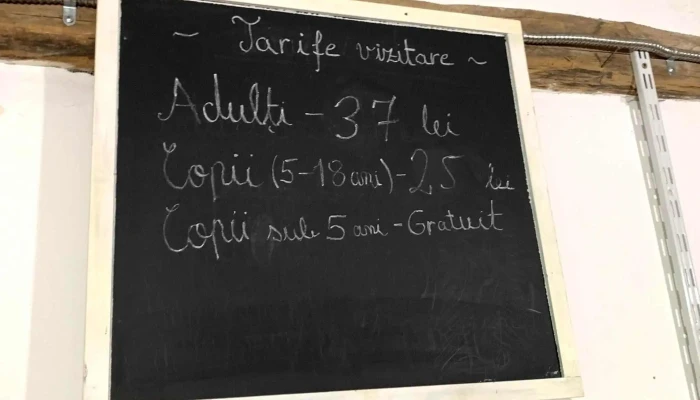 ~ Tarife vizitare ~
Adulți - 37 lei
Copii (5-18 ani) - 25 lei
Copii sub 5 ani - Gratuit